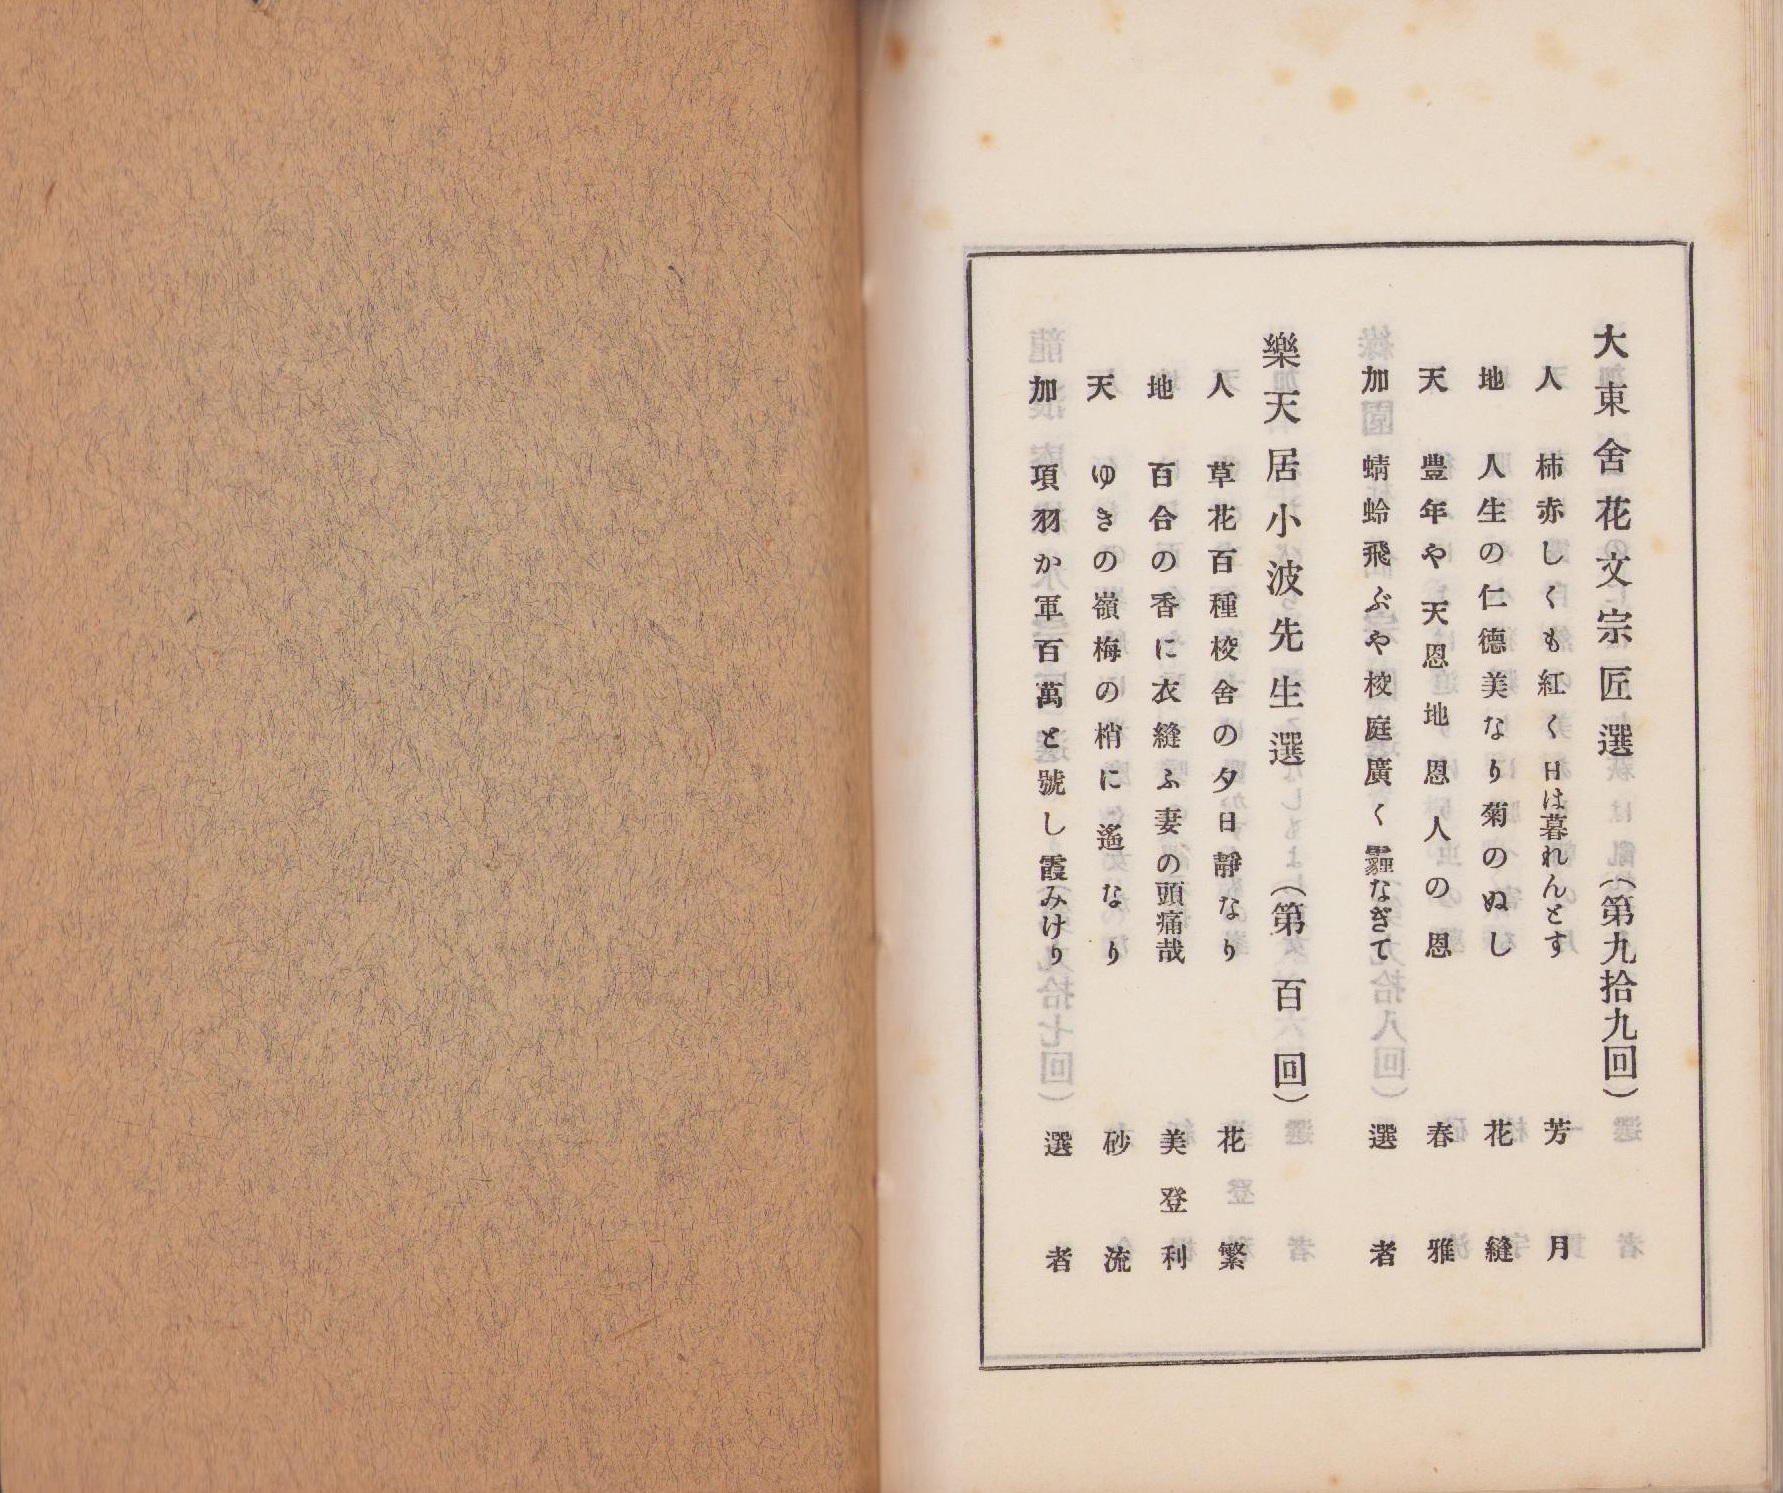 大東舍花文宗匠選（第九拾九回）
人 柿赤しくも紅く日は暮れんとす 芳月
地 人生の仁德美なり菊のぬし 花縫
天 豊年や天恩地恩人の恩 春雅
加 蜻蛉飛ぶや校庭廣く霾なぎて 選者
樂天居小波先生選（第百回）
人 草花百種校舍の夕日靜なり 花繁
地 百合の香に衣縫ふ妻の頭痛哉 美登利
天 ゆきの嶺梅の梢に遙なり 砂流
加 項羽か軍百萬と號し霞みけり 選者